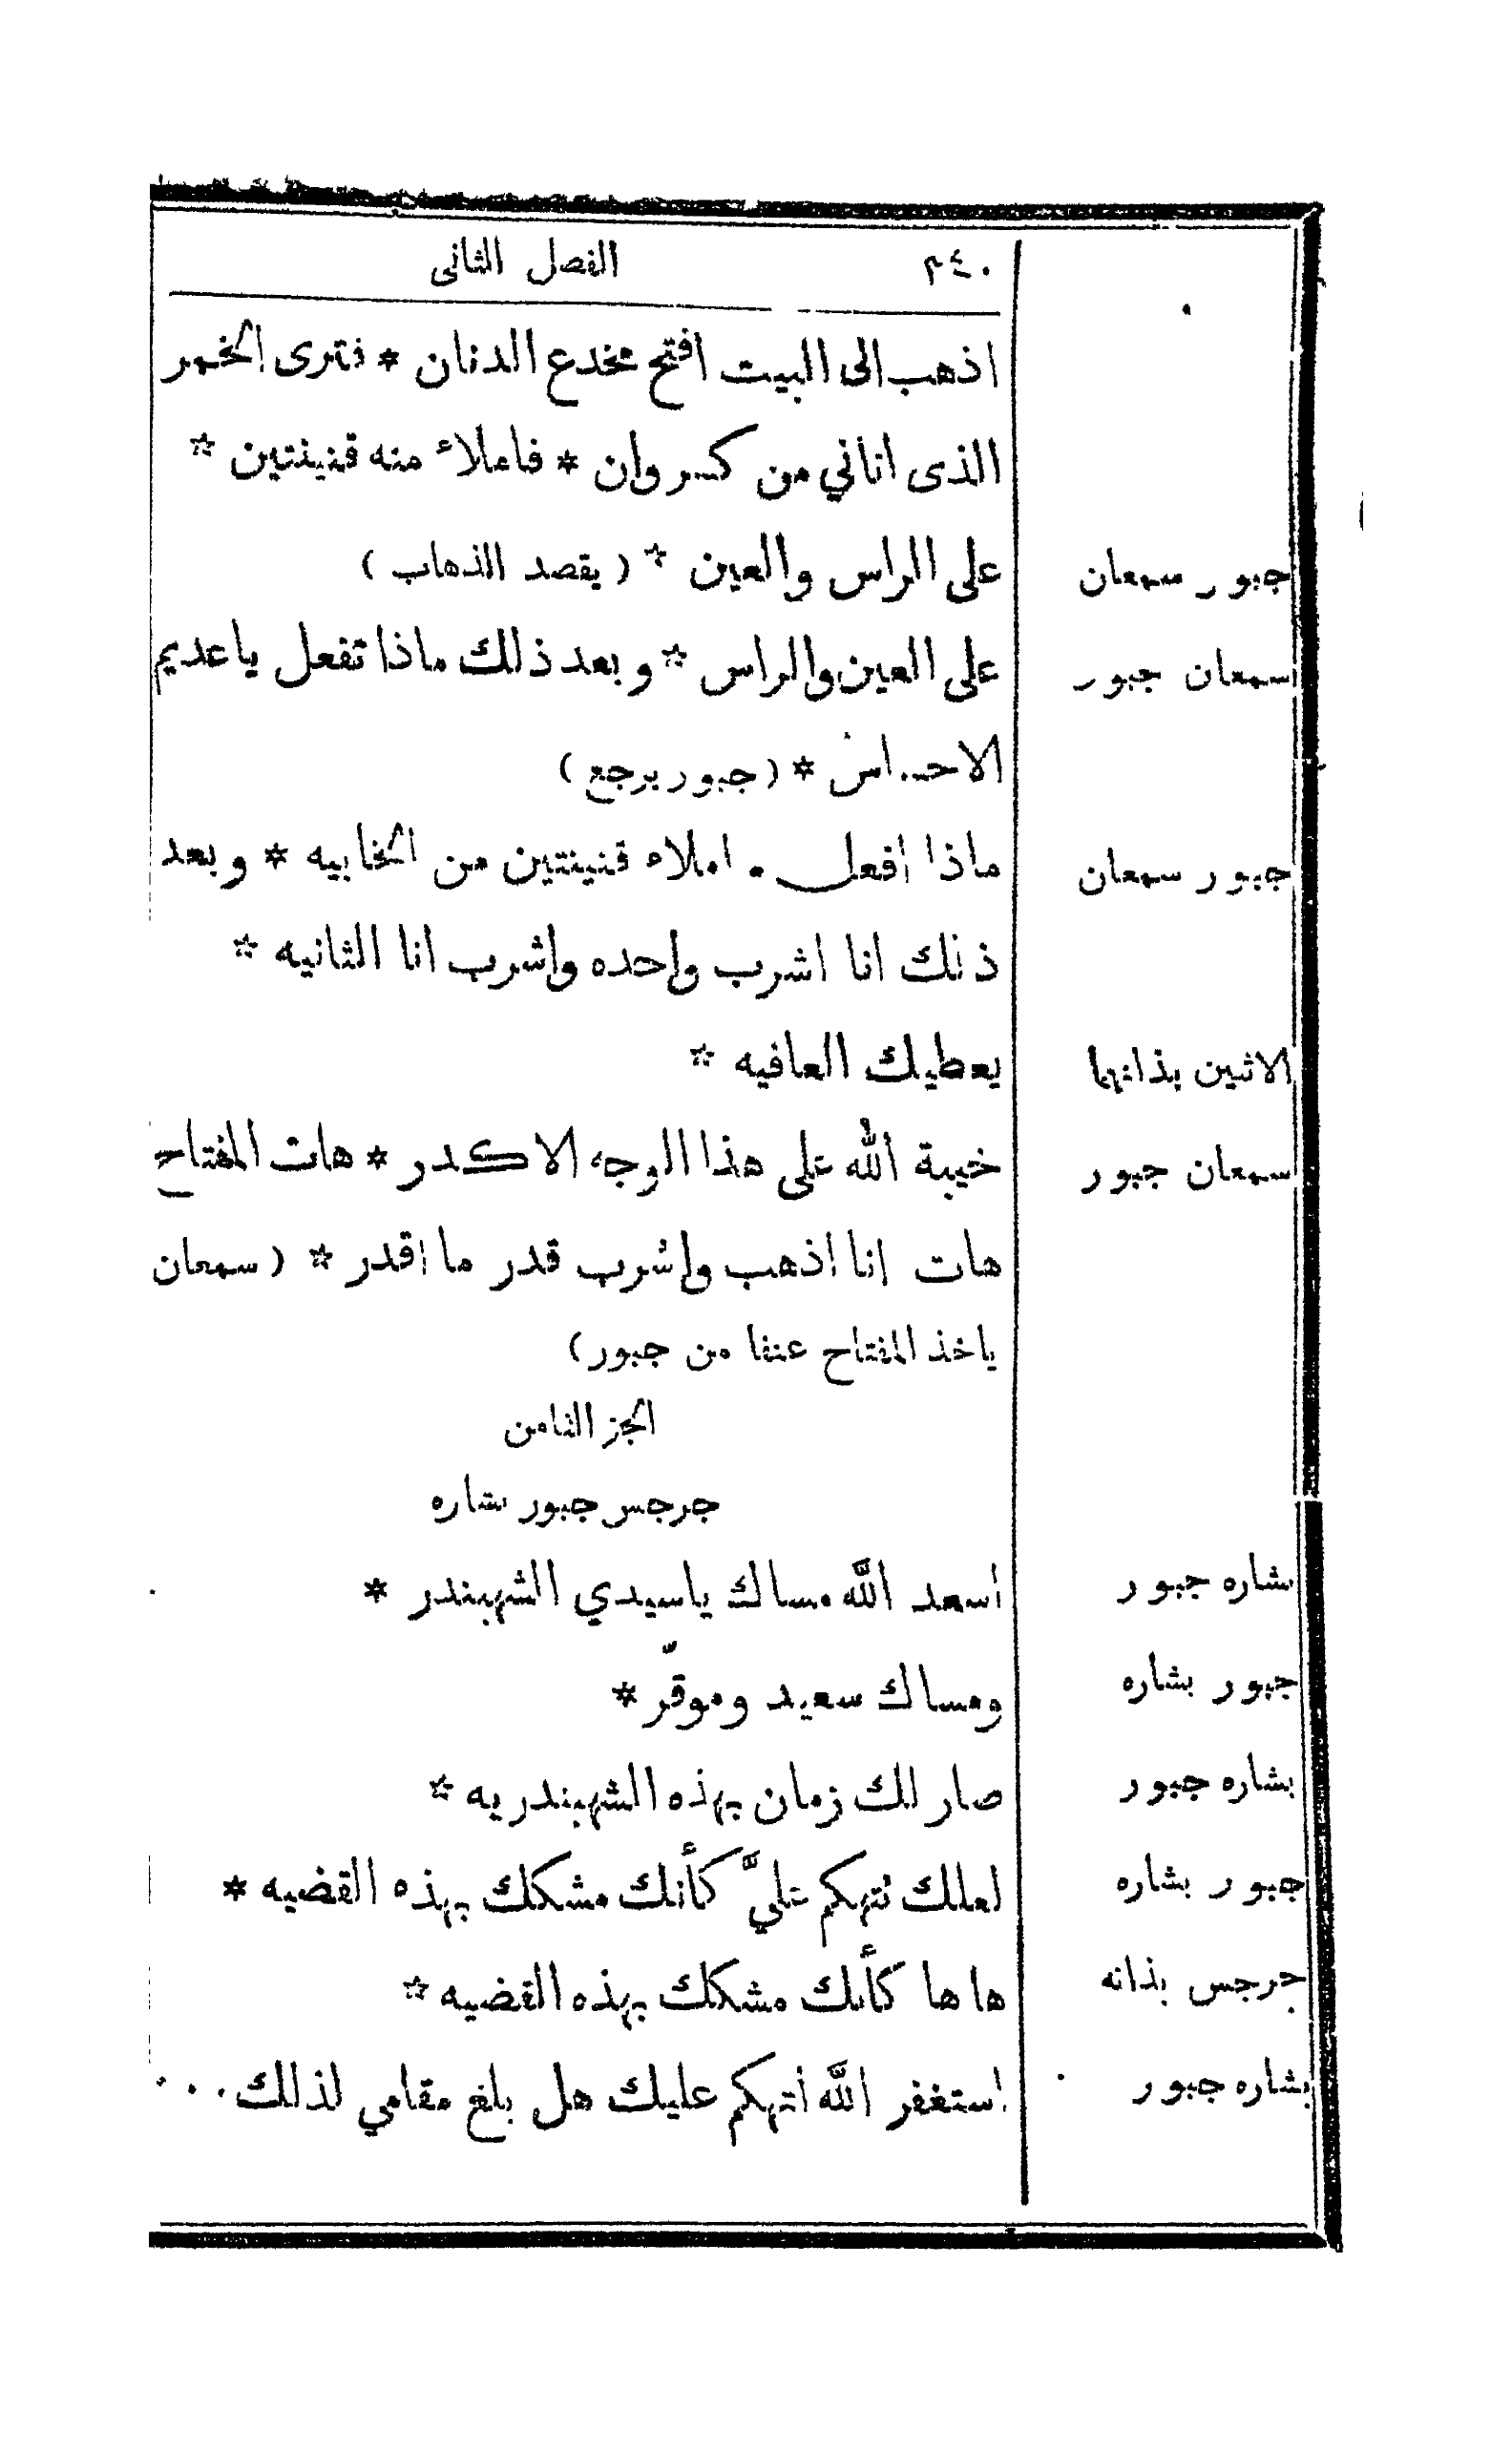 ٢٤٠ الفصل الثاني
اذهب الى البيت افتح مخدع الدنان * فترى الخمر
الذى اتاني من كسروان * فاملاء منه قنينتين *
جبور سمعان على الراس والعين * (يقصد الذهاب)
سمعان جبور على العين والراس * وبعد ذلك ماذا تفعل ياعديم
الاحساس * (جبور يرجع)
جبور سمعان ماذا افعل . املاء قنينتين من الخابيه * وبعد
ذلك انا اشرب واحده واشرب انا الثانيه *
الاثنين بذاتهما يعطيك العافيه *
سمعان جبور خيبة الله على هذا الوجه الاكدر * هات المفتاح
هات انا اذهب واشرب قدر ما اقدر * (سمعان
ياخذ المفتاح عنفا من جبور)
الجز الثامن
جرجس جبور بشاره
بشاره جبور اسعد الله مساك ياسيدي الشهبندر *
جبور بشاره ومساك سعيد وموقّر *
بشاره جبور صار لك زمان بهذه الشهبندريه *
جبور بشاره لعلك تتهكم عليَّ كأنك مشكك بهذه القضيه *
جرجس بذاته ها ها كأنك مشكك بهذه القضيه *
بشاره جبور استغفر الله أتهكم عليك هل بلغ مقامي لذلك . . .